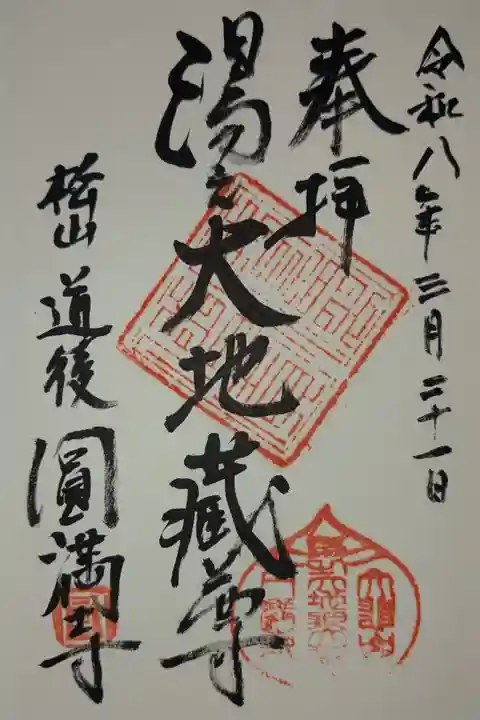 令和八年三月二十一日
奉拝
湯之大地蔵尊
道後
圓満寺